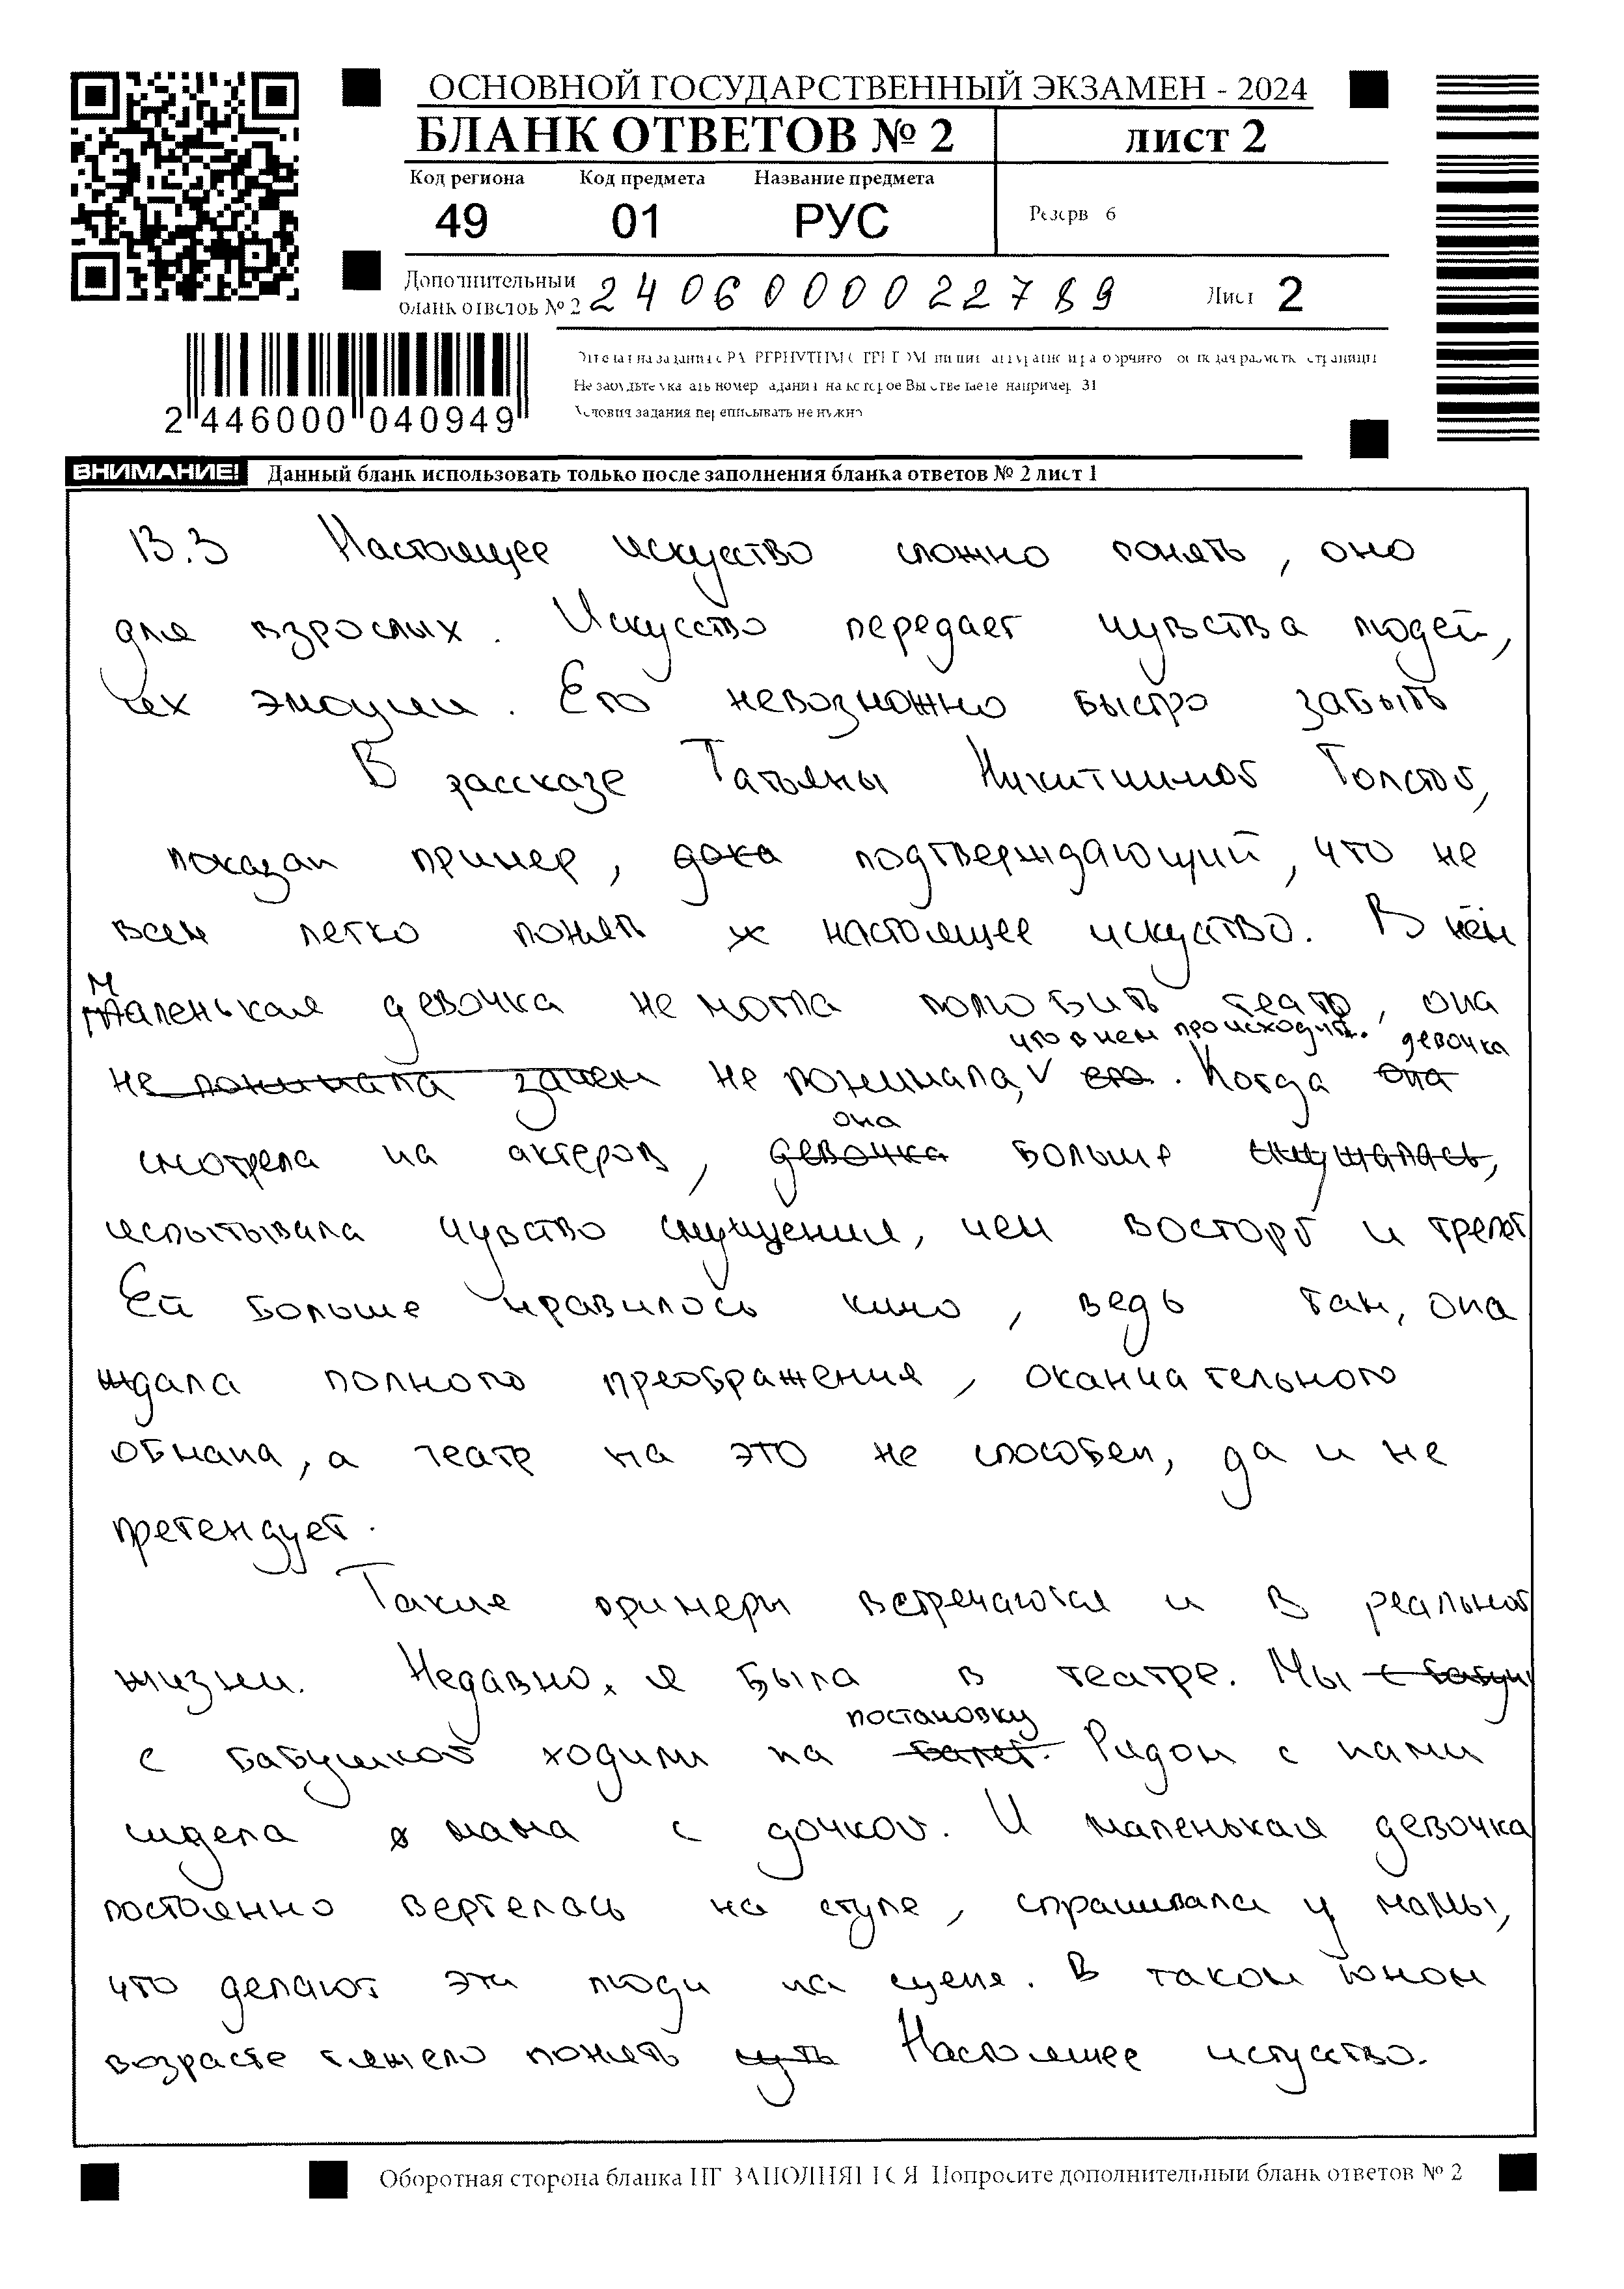 ОСНОВНОЙ ГОСУДАРСТВЕННЫЙ ЭКЗАМЕН - 2024
БЛАНК ОТВЕТОВ № 2 лист 2
Код региона Код предмета Название предмета
49 01 РУС
Резерв 6
Дополнительный
бланк ответов № 2
2406000022789
Лист 2
2 446000 040949
Не забудьте указать номер задания на которое Вы отвечаете например 31
Условия задания переписывать не нужно
ВНИМАНИЕ! Данный бланк использовать только после заполнения бланка ответов № 2 лист 1
13.3 Настоящее искуство сложно понять, оно
для взрослых. Искусство передает чувства людей,
их эмоции. Его невозможно быстро забыть
В рассказе Татьяны Никитишной Толстой,
показан пример, дока подтверждающий, что не
всем легко понять настоящее искуство. В нём
маленькая девочка не могла полюбить театр, она
что в нем происходит. девочка
не понимала зачем не понимала, его. Когда она
она
смотрела на актеров, девочка больше смущалась,
испытывала чувство смущения, чем восторг и трепет
Ей больше нравилось кино, ведь там, она
ждала полного преображения, оканчательного
обмана, а театр на это не способен, да и не
претендует.
Такие примеры встречаются и в реальной
жизни. Недавно, я была в театре. Мы с бабуш
постановку
с бабушкой ходили на балет. Рядом с нами
сидела мама с дочкой. И маленькая девочка
постоянно вертелась на стуле, спрашивала у мамы,
что делают эти люди на сцене. В таком юном
возрасте тяжело понять суть Настоящее искусство.
Оборотная сторона бланка НЕ ЗАПОЛНЯЕТСЯ Попросите дополнительный бланк ответов № 2